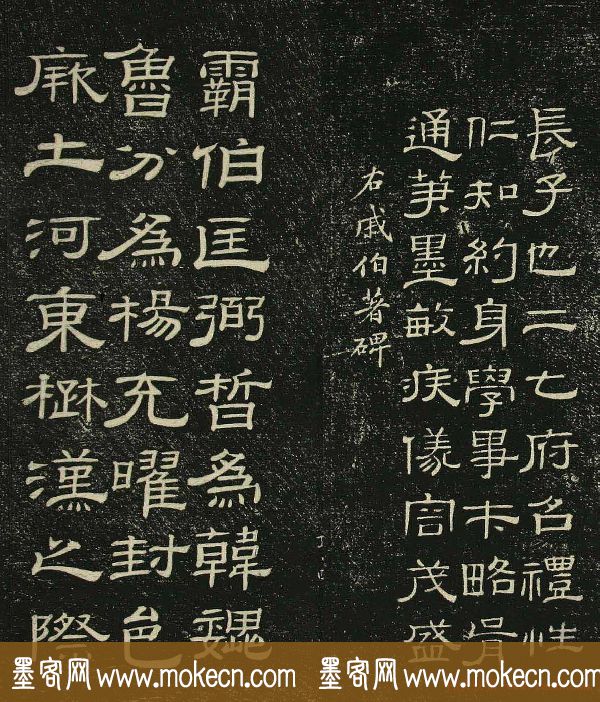 長子也二七府名禮性
仁知約身學事略
通茟墨敏疾儀茂盛
右戚伯著碑
霸伯匡弼晢為韓魏
魯分為楊充曜封邑
厥土河東楙漢之際
墨客网 www.mokecn.com 墨客网 www.mokecn.com